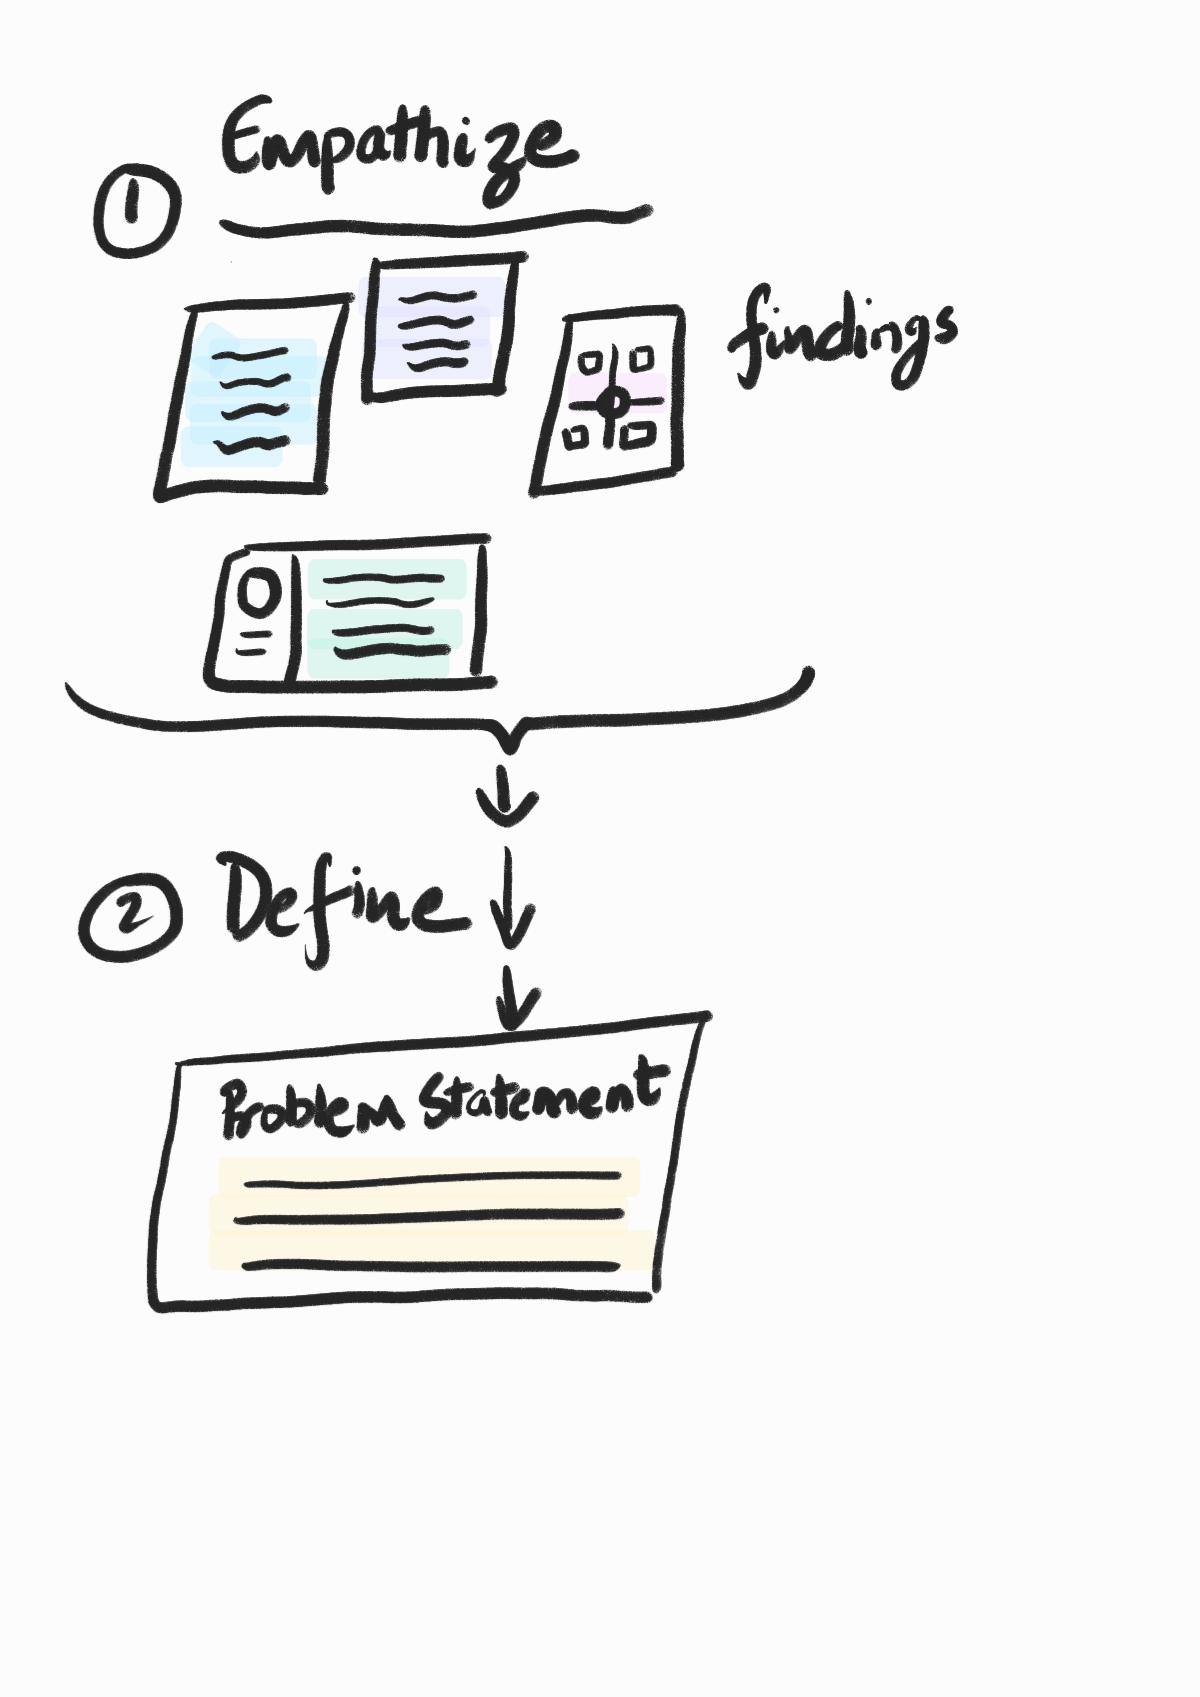 Empathize
1
findings
2 Define
Problem Statement